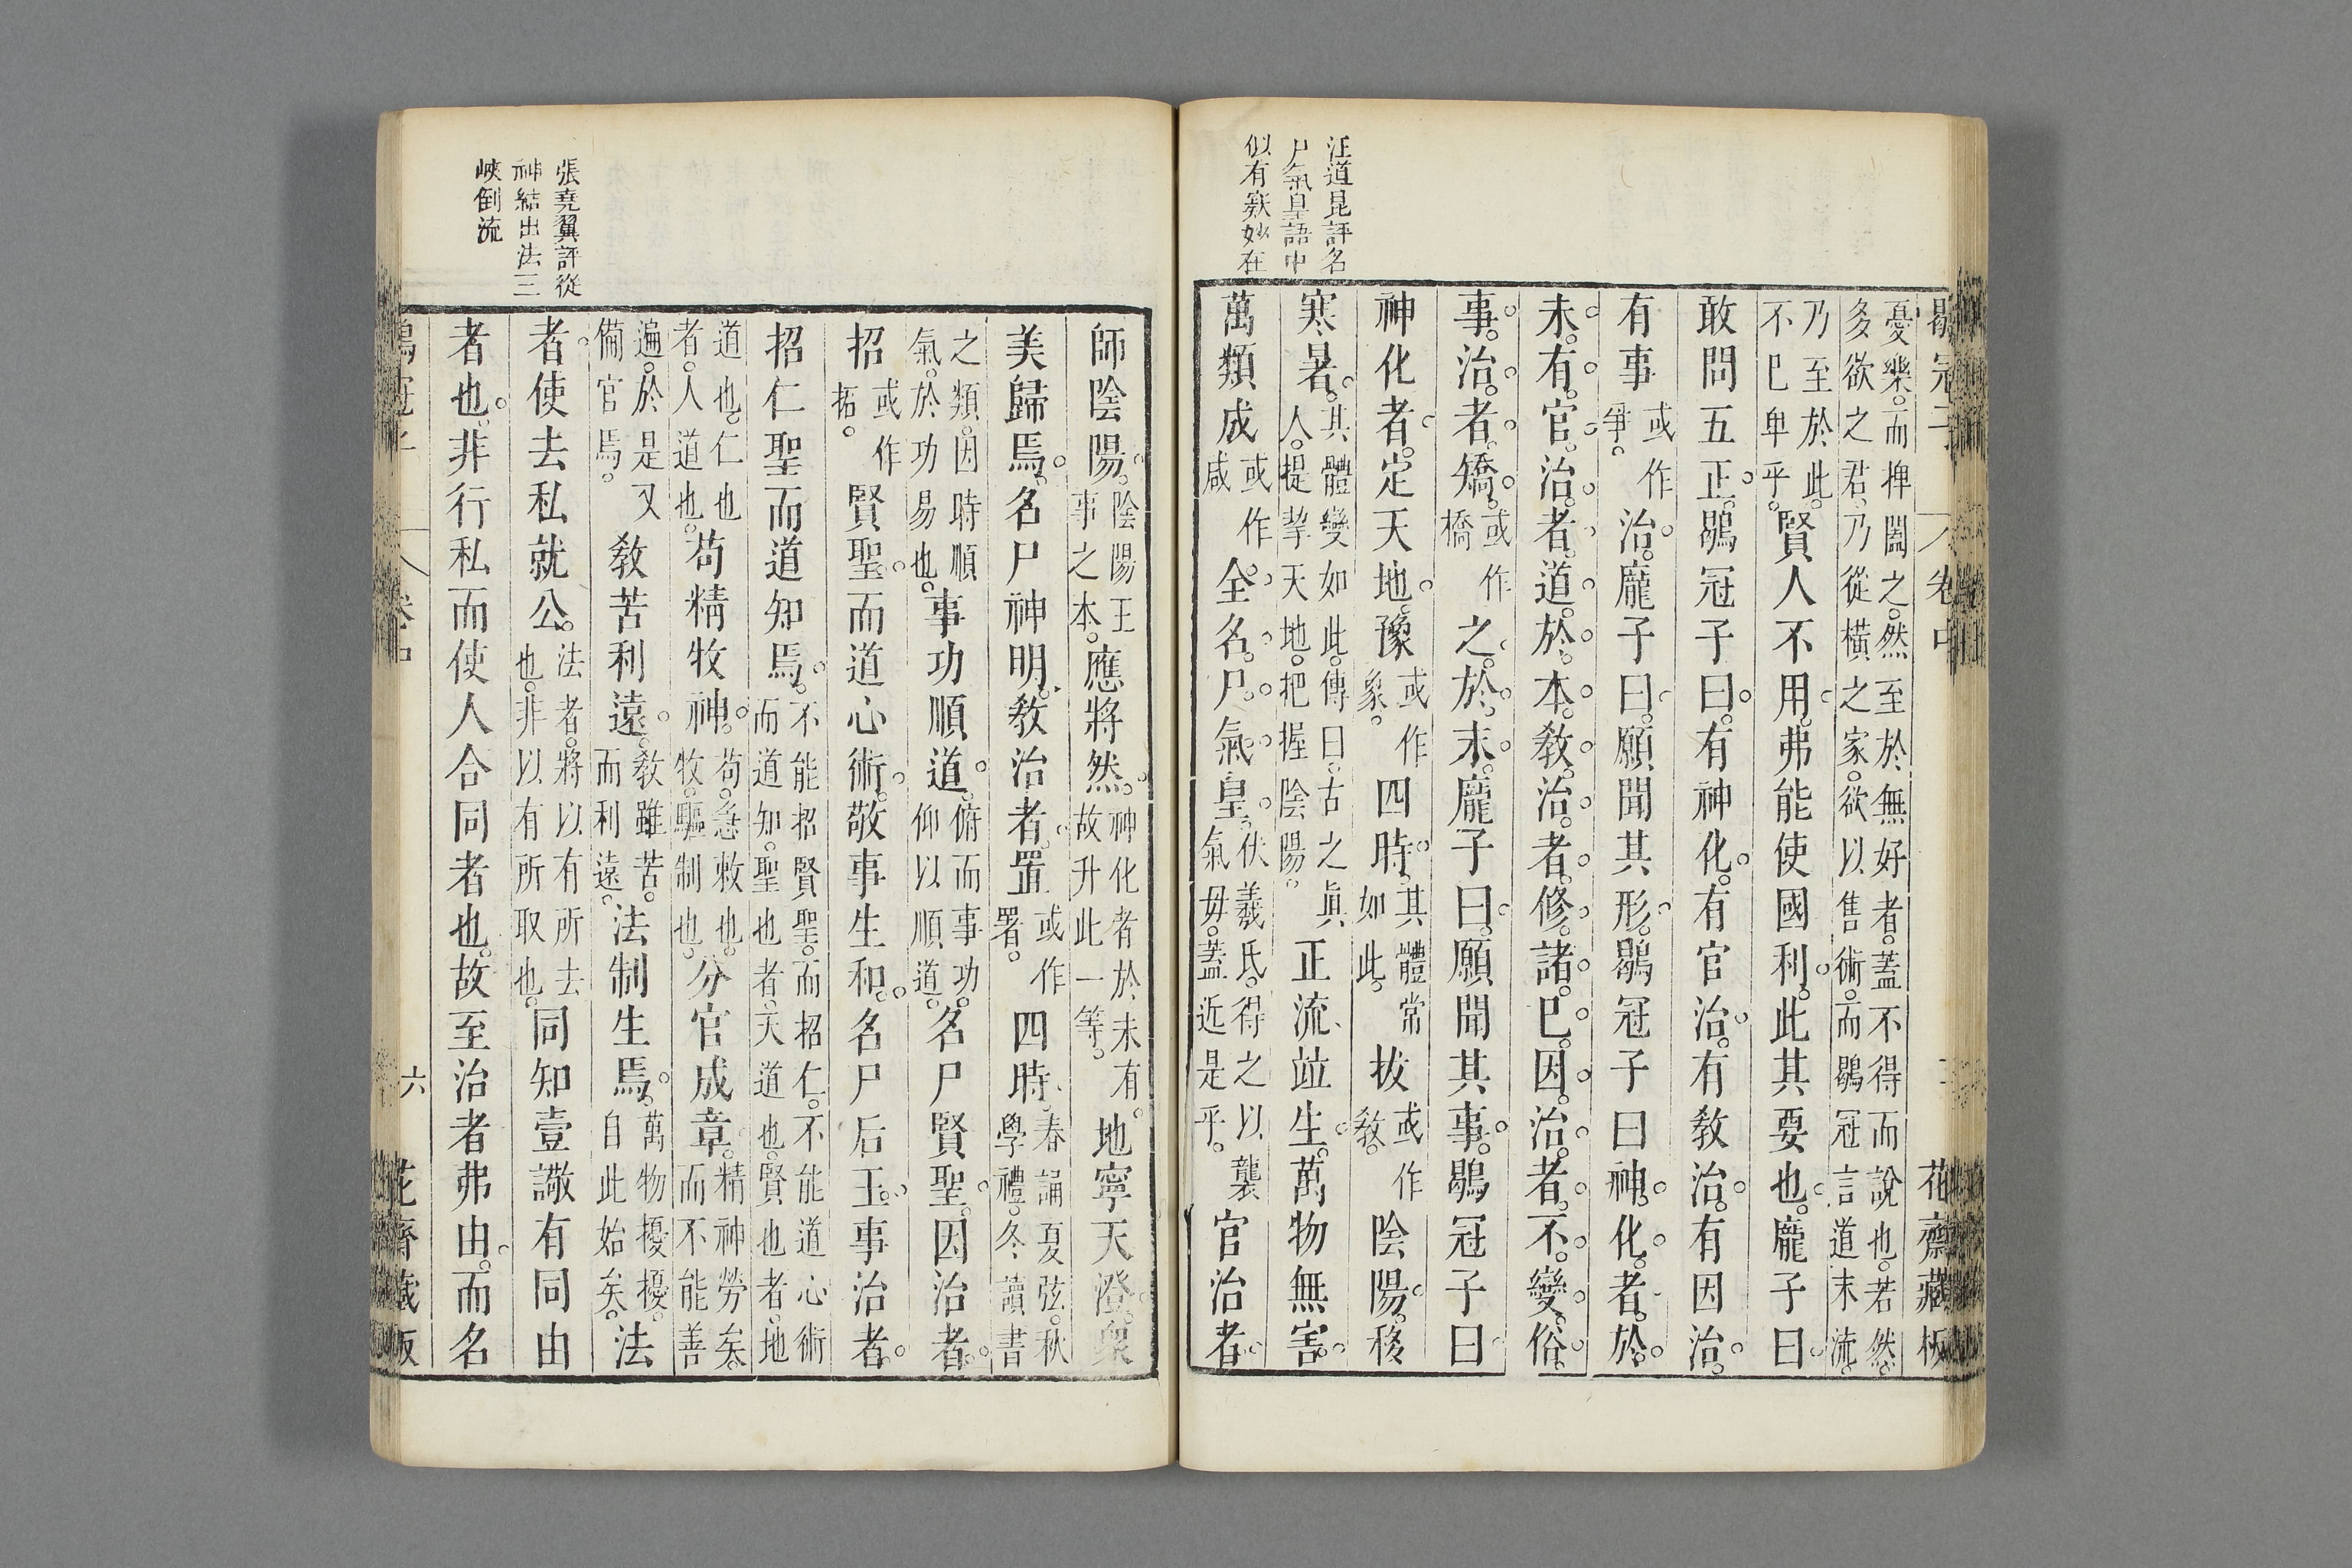 汪道昆評名
尸氣皇語中
似有窾妙在
憂樂。而捭闔之。然至於無好者。蓋不得而說也。若然。
多欲之君。乃從橫之家。欲以售術。而鶡冠言道末流。
乃至於此。
不巳卑乎。
賢人不用。弗能使國利。此其要也。龐子曰。
敢問五正。鶡冠子曰。有神化。有官治。有教治。有因治。
有事或作爭。治。龐子曰。願聞其形。鶡冠子曰神化者。於
未有。官治者。道於本。教治者。修諸巳。因治者。不變俗。
事治者。矯或作橋之於末。龐子曰。願聞其事。鶡冠子曰
神化者。定天地。豫或作象。四時。其體常如此。拔或作敎。陰陽。移
寒暑。其體變如此。傳曰。古之眞人。提挈天地。把握陰陽。正流、竝生。萬物無害。
萬類成或作咸全。名尸氣皇。伏羲氏。得之以襲氣母。蓋近是乎。官治者。
鶡冠子
卷中
花齋藏板
張堯翼評從
神結出法三
峽倒流
師陰陽。陰陽王事之本。應將然。神化者於未有。故升此一等。地寧天澄。衆
美歸焉。名尸神明。教治者。置或作署。四時、春誦夏弦。秋學禮。冬讀書
之類。因時順氣。於功易也。事功順道。俯而事功。仰以順道。名尸賢聖。因治者。
招或作拓。賢聖。而道心術。敬事生和。名尸后王。事治者。
招仁聖而道知焉。不能招賢聖。而招仁。不能道心術而道知。聖也者。天道也。賢也者。地
道也。仁也者。人道也。苟精牧神。苟。急敕也。牧。驅制也。分官成章。精神勞矣。而不能善
遍。於是又備官焉。教苦利遠。教雖苦。而利遠。法制生焉。萬物擾擾。自此始矣。法
者。使去私就公。法者。將以有所去也。非以有所取也。同知壹譤有同由
者也。非行私而使人合同者也。故至治者弗由。而名
鶡冠子
卷中
六
花齋藏板